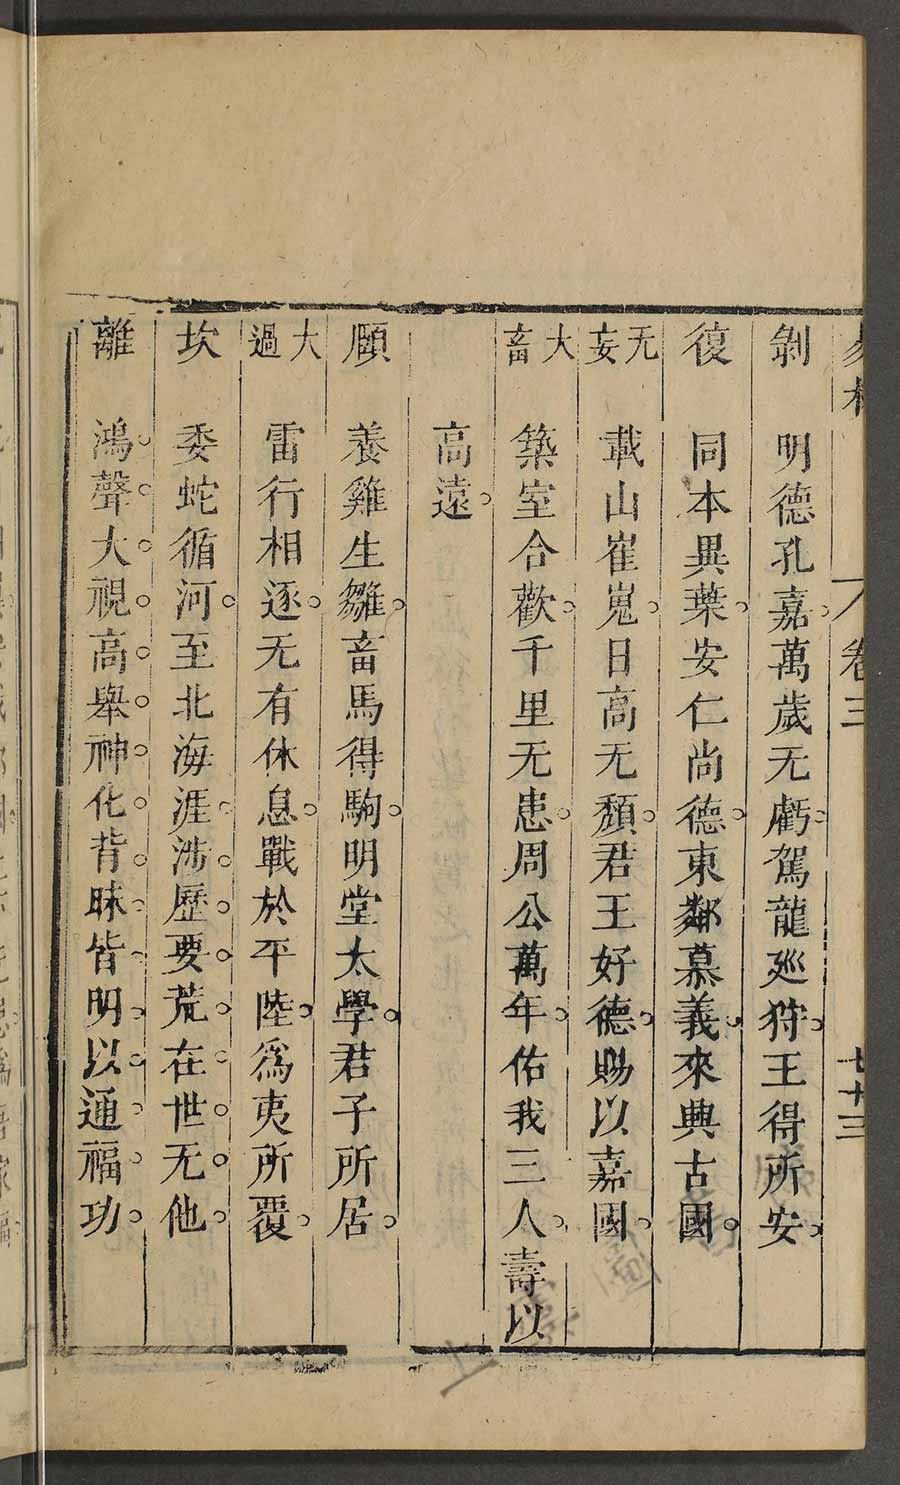 易林 卷三 七十三
剝 明德孔嘉。萬歲无虧。駕龍巡狩。王得所安。
復 同本異葉。安仁尚德。東鄰慕義。來興古國。
无妄 載山崔嵬。日高无頹。君王好德。賜以嘉國。
大畜 築室合歡。千里无患。周公萬年。佑我三人。壽以
高遠。
頤 養雞生雛。畜馬得駒。明堂太學。君子所居。
大過 雷行相逐。无有休息。戰於平陸。爲夷所覆。
坎 委蛇循河。至北海涯。涉歷要荒。在世无他。
離 鴻聲大視。高舉神化。背昧皆明。以通福功。